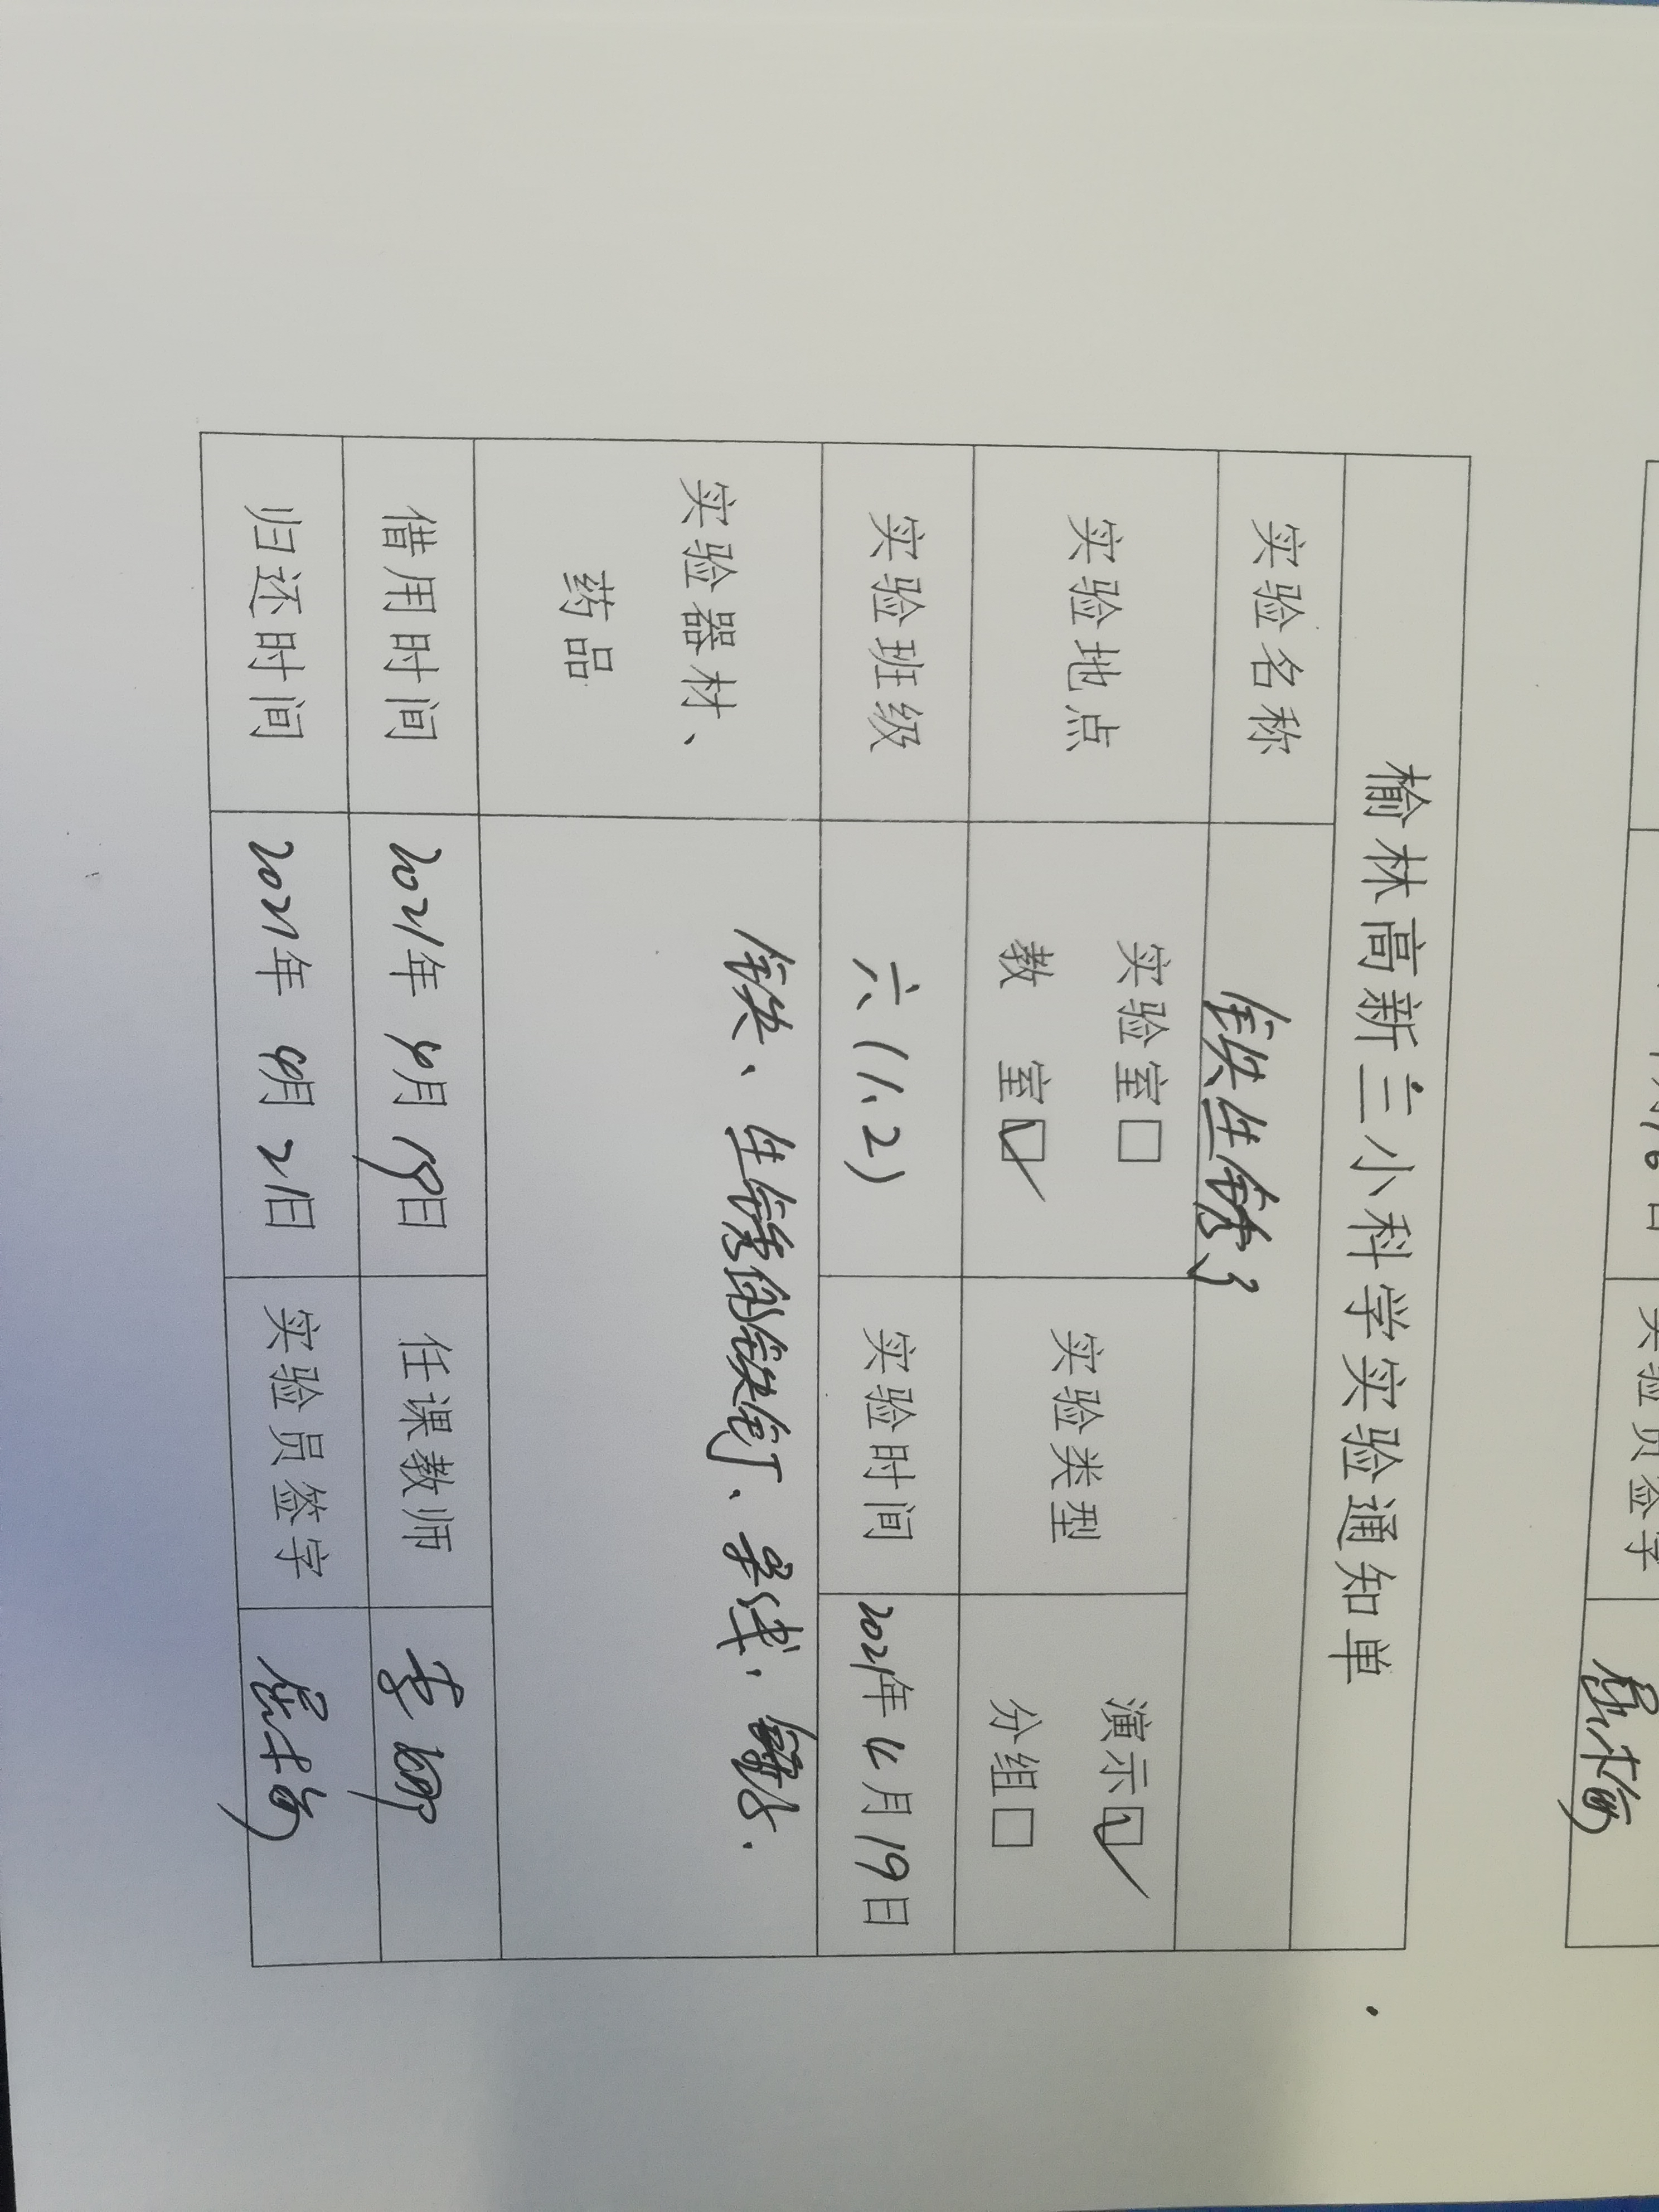 榆林高新三小科学实验通知单
实验名称 铁生锈了
实验地点 实验室□ 教 室☑ 实验类型 演示☑ 分组□
实验班级 六(1、2) 实验时间 2021年4月19日
实验器材、药品 铁、生锈的铁钉、导线、
借用时间 2021年4月19日 任课教师 李
归还时间 2021年4月21日 实验员签字
实验员签字